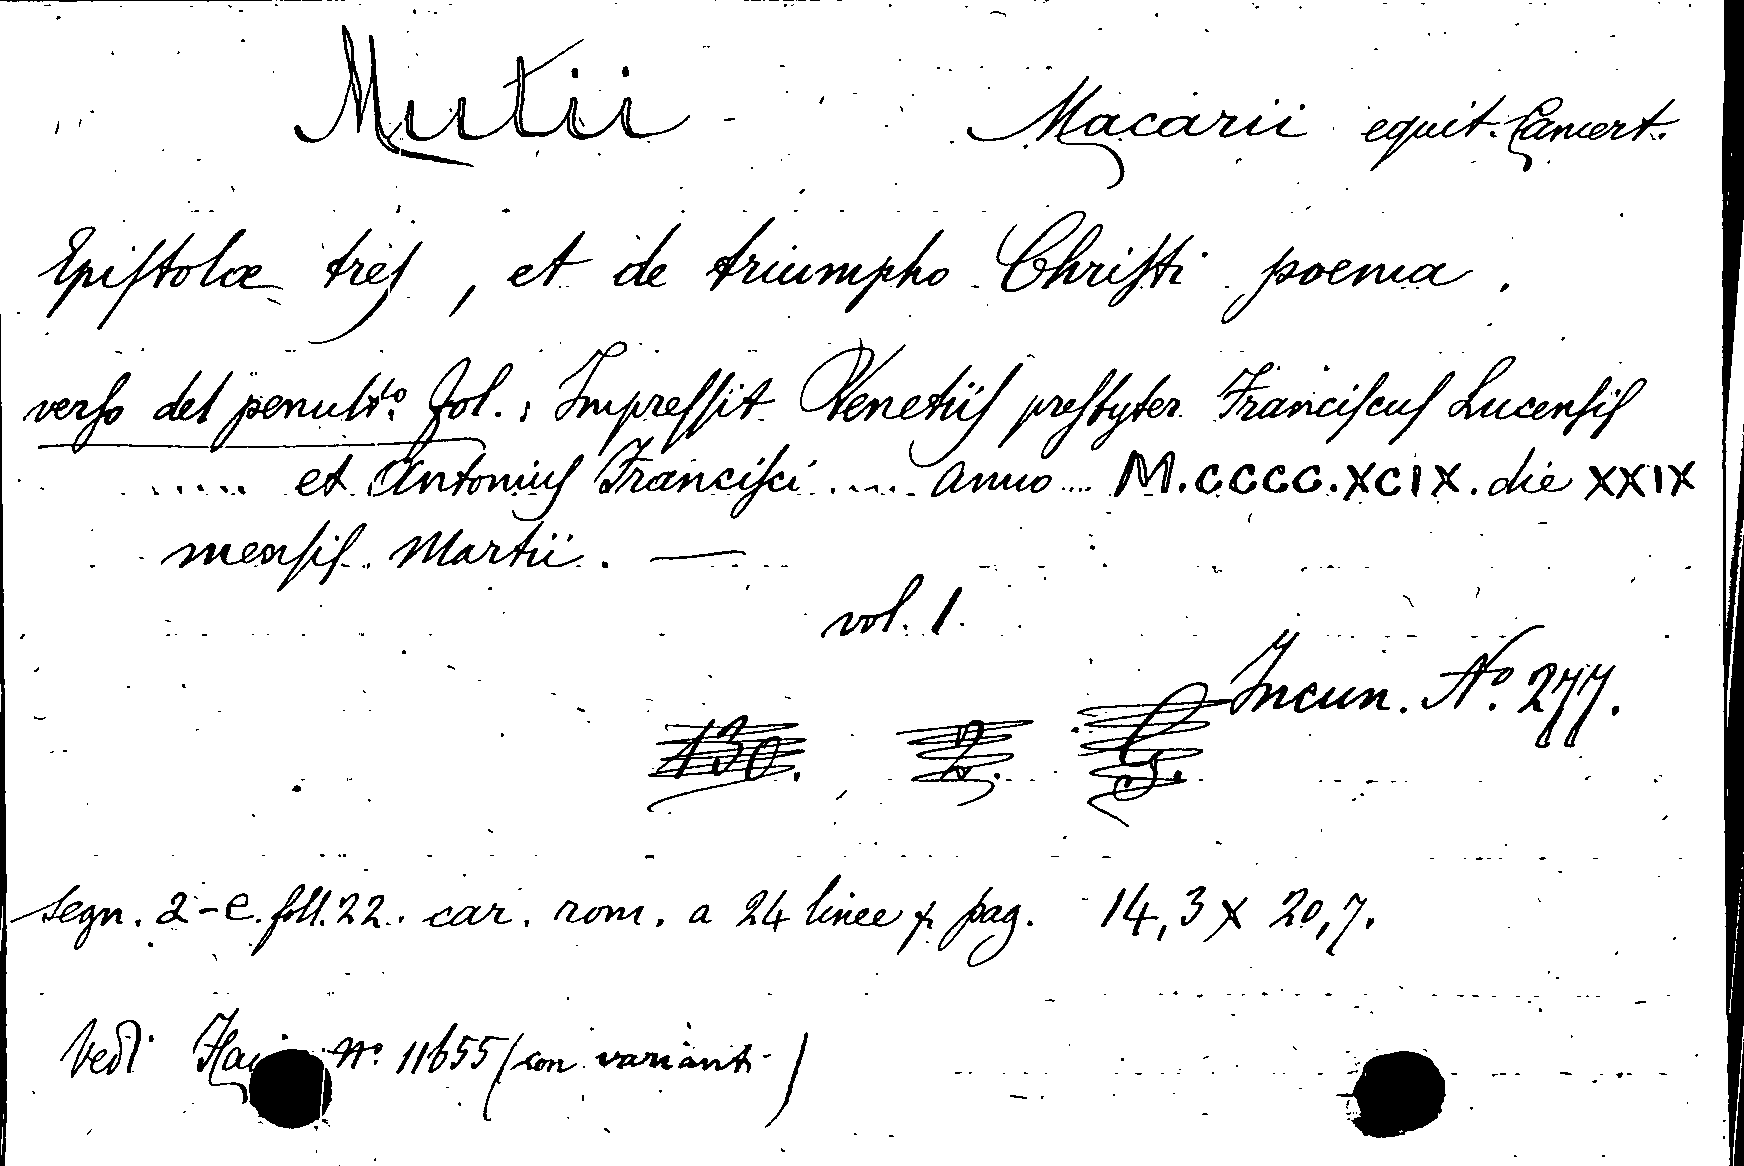 Mutii Macarii equit. Camert.
Epiſtolæ treſ, et de triumpho Chriſti poema.
verſo del penultº. fol.: Impreſſit Venetiiſ preſbyter Franciſcuſ Lucenſiſ
..... et Antoniuſ Franciſci ..... anno .... M.CCCC.XCIX. die XXIX
menſiſ Martii. —
vol. 1.
Incun. Nº 277.
130. 2. G.
segn. a-e. foll. 22. car. rom. a 24 linee p. pag. 14,3 x 20,7.
Vedi Nº. 11655 (con variant.)